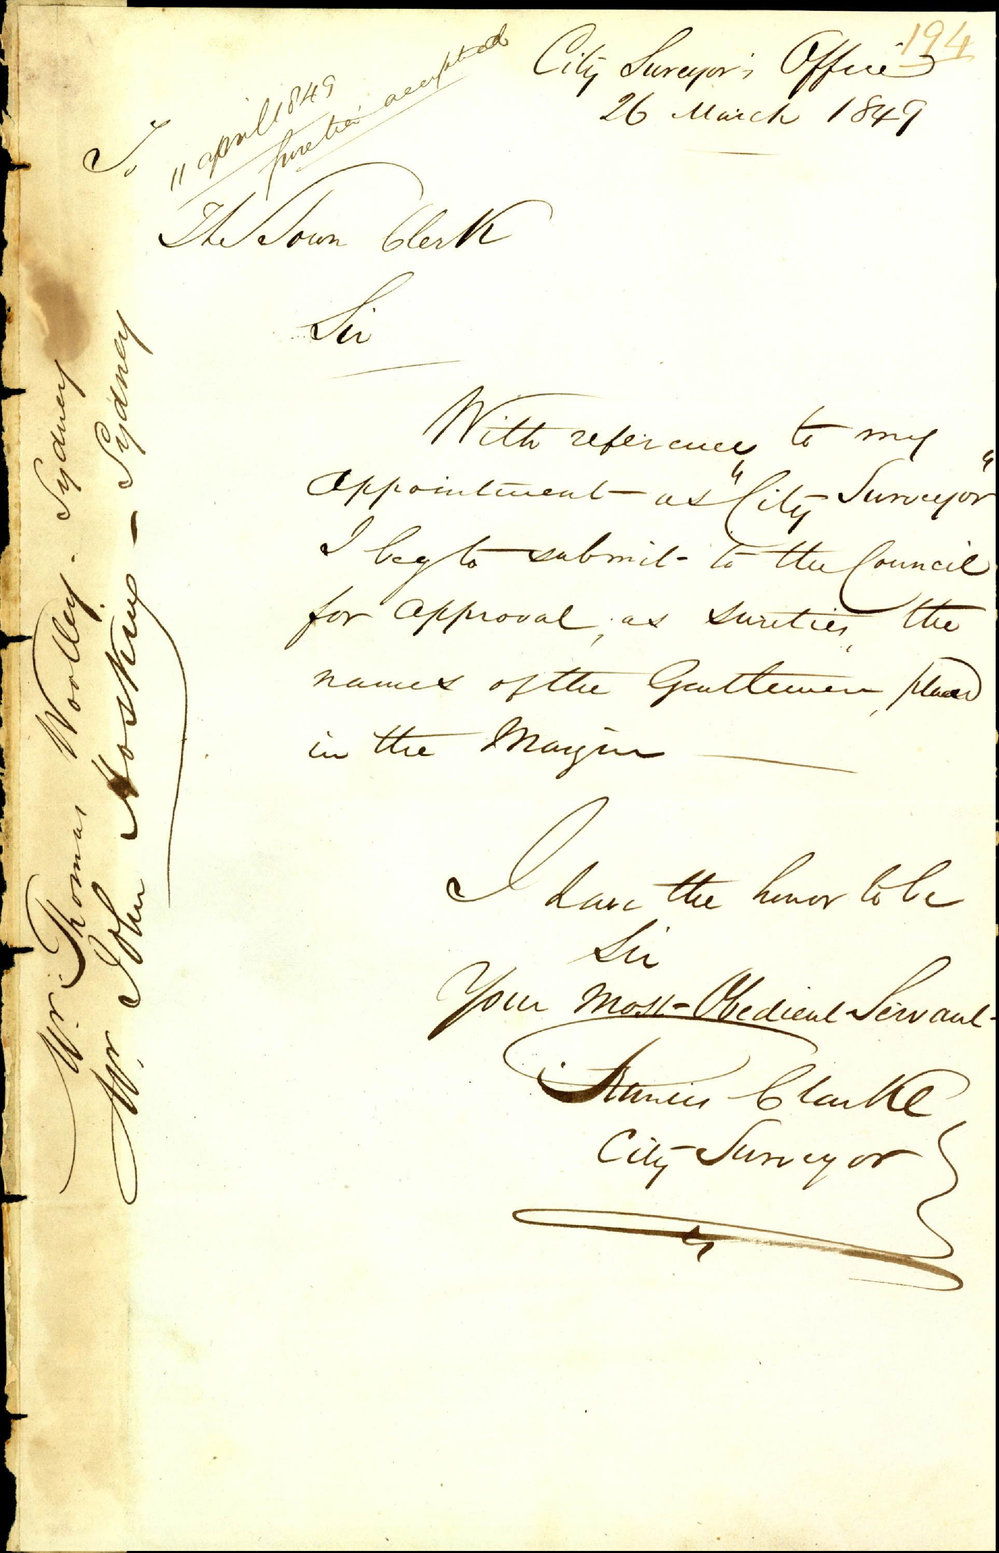 194
City Surveyor's Office
26 March 1849
11 april 1849
sureties accepted
To
The Town Clerk
Sir
With reference to my
appointment as "City Surveyor"
I beg to submit to the Council
for approval, as sureties, the
names of the Gentlemen, placed
in the Margin
I have the honor to be
Sir
Your Most Obedient Servant
Francis Clarke
City Surveyor
Mr. Thomas Woolley - Sydney
Mr. John Hosking - Sydney